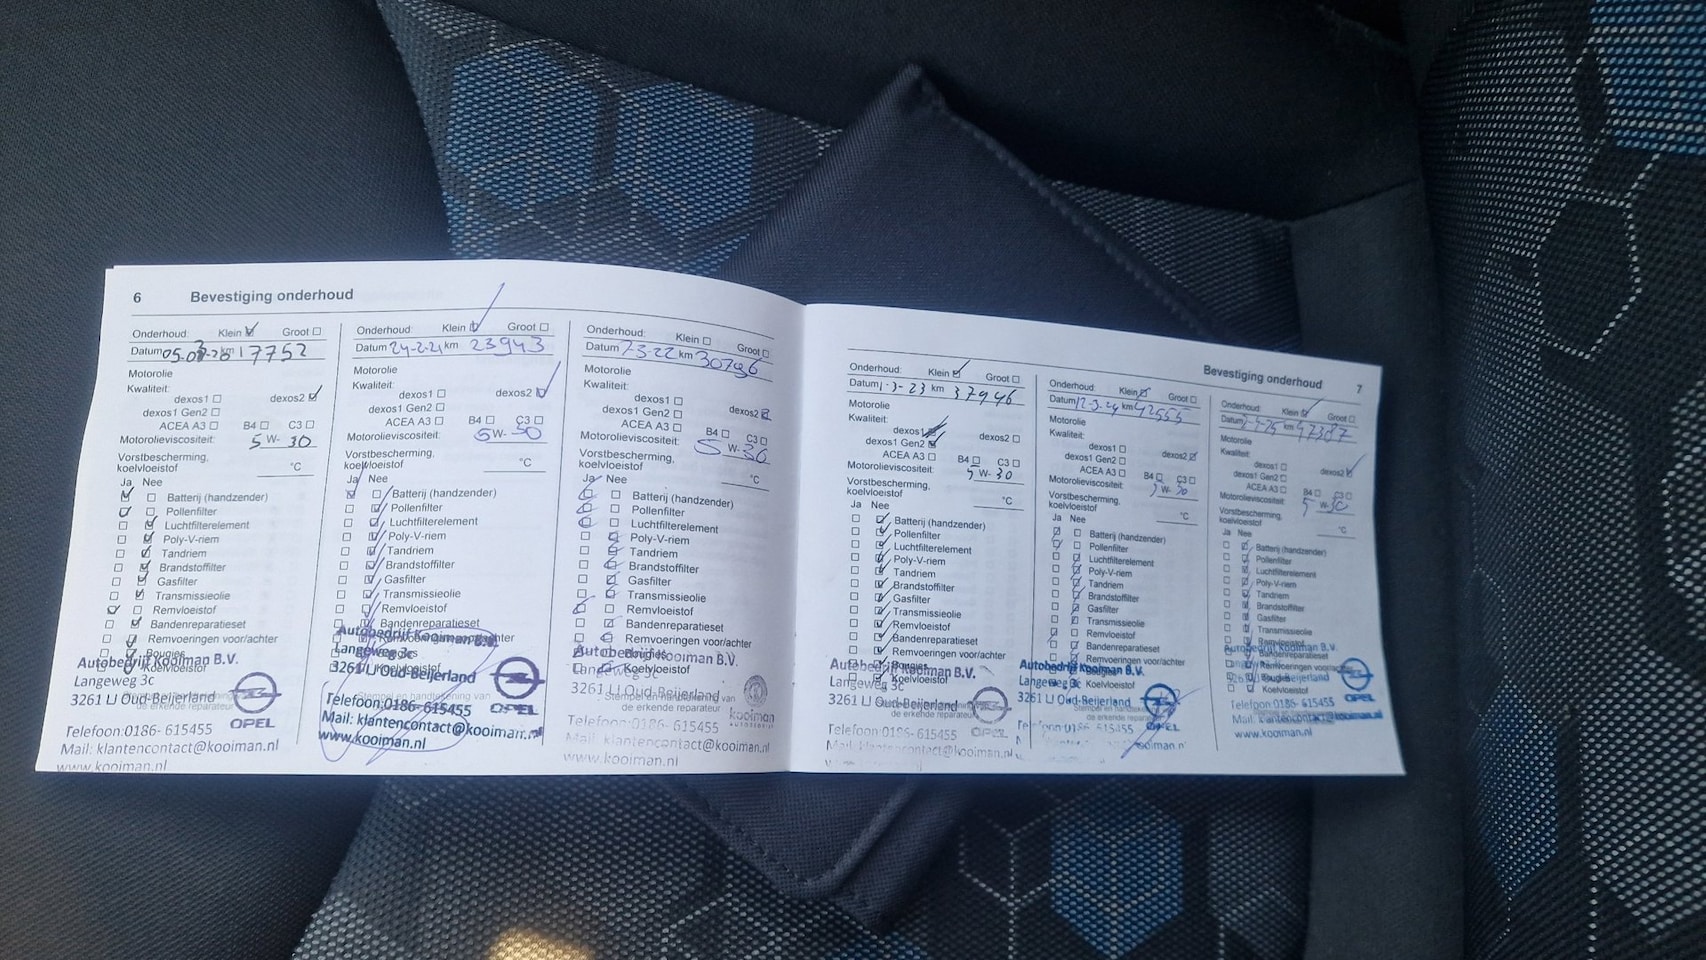 6 Bevestiging onderhoud
Onderhoud: Klein Groot
Datum km 17752
Motorolie
Kwaliteit:
dexos1 dexos2
dexos1 Gen2
ACEA A3 B4 C3
Motorolieviscositeit: 5 W- 30
Vorstbescherming,
koelvloeistof °C
Ja Nee
Batterij (handzender)
Pollenfilter
Luchtfilterelement
Poly-V-riem
Tandriem
Brandstoffilter
Gasfilter
Transmissieolie
Remvloeistof
Bandenreparatieset
Remvoeringen voor/achter
Bougies
Koelvloeistof
Autobedrijf Kooiman B.V.
Langeweg 3c
3261 LJ Oud-Beijerland
OPEL
Telefoon:0186- 615455
Mail: klantencontact@kooiman.nl
www.kooiman.nl
Onderhoud: Klein Groot
Datum 24-2-21 km 23943
Motorolie
Kwaliteit:
dexos1 dexos2
dexos1 Gen2
ACEA A3 B4 C3
Motorolieviscositeit: 5 W- 30
Vorstbescherming,
koelvloeistof °C
Ja Nee
Batterij (handzender)
Pollenfilter
Luchtfilterelement
Poly-V-riem
Tandriem
Brandstoffilter
Gasfilter
Transmissieolie
Remvloeistof
Bandenreparatieset
Remvoeringen voor/achter
Koelvloeistof
Autobedrijf Kooiman B.V.
Langeweg 3c
3261 LJ Oud-Beijerland
Stempel en handtekening van
de erkende reparateur
OPEL
Telefoon:0186- 615455
Mail: klantencontact@kooiman.nl
www.kooiman.nl
Onderhoud: Klein Groot
Datum 7-3-22 km 30796
Motorolie
Kwaliteit:
dexos1
dexos1 Gen2 dexos2
ACEA A3 B4 C3
Motorolieviscositeit: 5 W- 30
Vorstbescherming,
koelvloeistof °C
Ja Nee
Batterij (handzender)
Pollenfilter
Luchtfilterelement
Poly-V-riem
Tandriem
Brandstoffilter
Gasfilter
Transmissieolie
Remvloeistof
Bandenreparatieset
Remvoeringen voor/achter
Bougies
Koelvloeistof
Autobedrijf Kooiman B.V.
Langeweg 3c
3261 LJ Oud-Beijerland
Stempel en handtekening van
de erkende reparateur
kooiman
Telefoon:0186- 615455
Mail: klantencontact@kooiman.nl
www.kooiman.nl
Bevestiging onderhoud 7
Onderhoud: Klein Groot
Datum 1-3-23 km 37946
Motorolie
Kwaliteit:
dexos1 dexos2
dexos1 Gen2
ACEA A3 B4 C3
Motorolieviscositeit: 5 W- 30
Vorstbescherming,
koelvloeistof °C
Ja Nee
Batterij (handzender)
Pollenfilter
Luchtfilterelement
Poly-V-riem
Tandriem
Brandstoffilter
Gasfilter
Transmissieolie
Remvloeistof
Bandenreparatieset
Remvoeringen voor/achter
Bougies
Koelvloeistof
Autobedrijf Kooiman B.V.
Langeweg 3c
3261 LJ Oud-Beijerland
Stempel en handtekening van
de erkende reparateur
OPEL
Telefoon:0186- 615455
Mail: klantencontact@kooiman.nl
Onderhoud: Klein Groot
Datum 12-3-24 km 42555
Motorolie
Kwaliteit:
dexos1 dexos2
dexos1 Gen2
ACEA A3 B4 C3
Motorolieviscositeit: W- 30
Vorstbescherming,
koelvloeistof °C
Ja Nee
Batterij (handzender)
Pollenfilter
Luchtfilterelement
Poly-V-riem
Tandriem
Brandstoffilter
Gasfilter
Transmissieolie
Remvloeistof
Bandenreparatieset
Remvoeringen voor/achter
Koelvloeistof
Autobedrijf Kooiman B.V.
Langeweg 3c
3261 LJ Oud-Beijerland
OPEL
Onderhoud: Klein Groot
Datum km 47387
Motorolie
Kwaliteit:
dexos1 dexos2
dexos1 Gen2
ACEA A3 B4 C3
Motorolieviscositeit: 5 W- 30
Vorstbescherming,
koelvloeistof °C
Ja Nee
Batterij (handzender)
Pollenfilter
Luchtfilterelement
Poly-V-riem
Tandriem
Brandstoffilter
Gasfilter
Transmissieolie
Remvloeistof
Bandenreparatieset
Koelvloeistof
OPEL
www.kooiman.nl